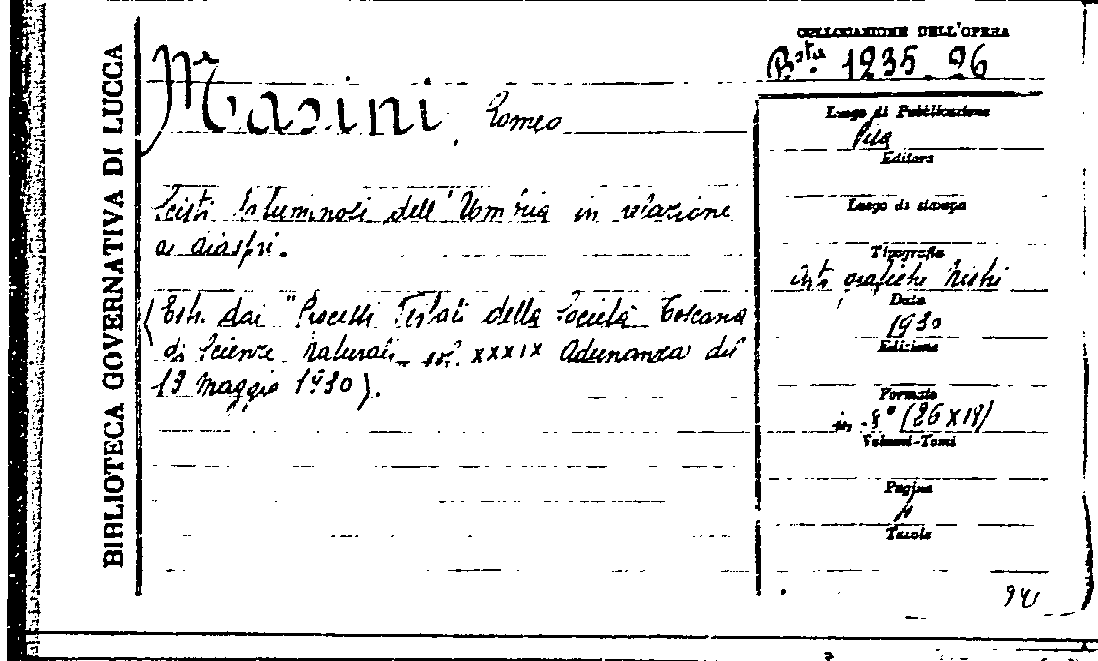 BIBLIOTECA GOVERNATIVA DI LUCCA
Masini, Romeo
Scisti bituminosi dell'Umbria in relazione
a diaspri.
(Estr. dai "Processi Verbali della Società Toscana
di Scienze Naturali vol. XXXIX Adunanza del
13 maggio 1930).
COLLOCAZIONE DELL'OPERA
B.sta 1235.26
Luogo di Pubblicazione
Pisa
Editore
Luogo di stampa
Tipografia
Arti grafiche Nistri
Data
1930
Edizione
Formato
in-8° (26x19)
Volumi-Tomi
Pagine
Tavole